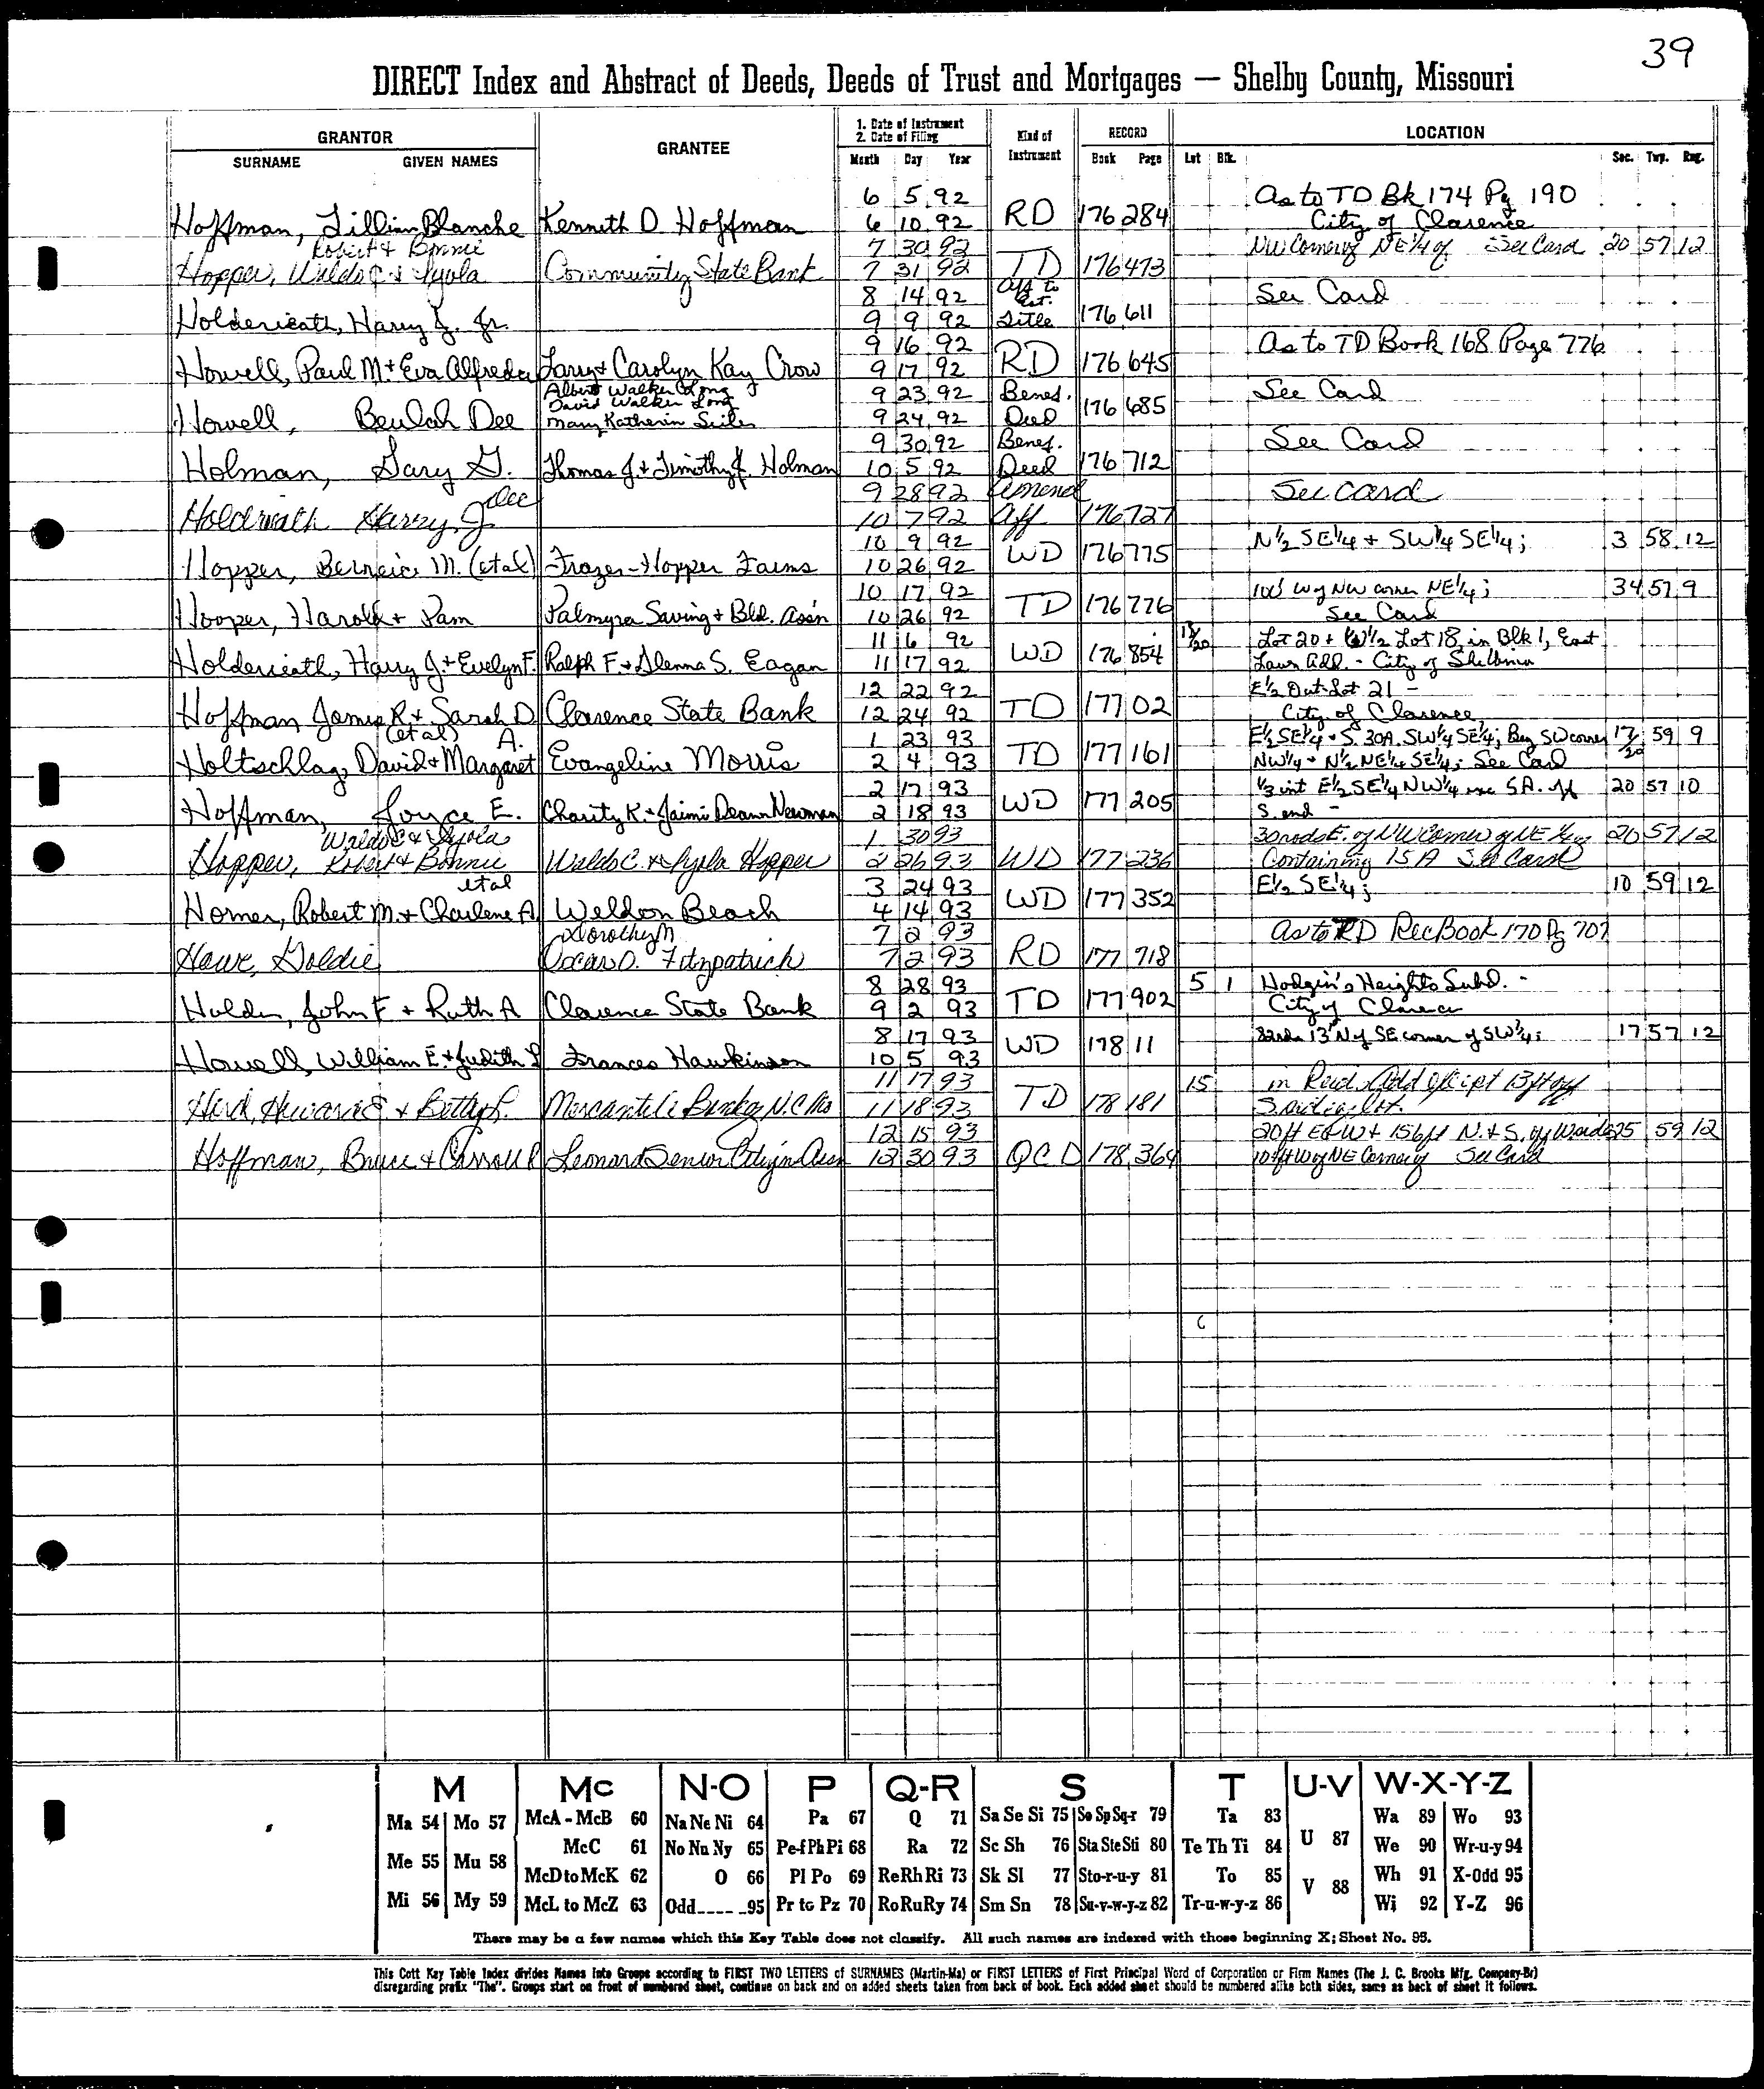 39
DIRECT Index and Abstract of Deeds, Deeds of Trust and Mortgages — Shelby County, Missouri
GRANTOR
SURNAME GIVEN NAMES
GRANTEE
1. Date of Instrument
2. Date of Filing
Month Day Year
Kind of Instrument
RECORD
Book Page
LOCATION
Lot Blk. Sec. Twp. Rng.
6 5 92 As to TD Bk 174 Pg 190
Hoffman, Lillian Blanche Kenneth D. Hoffman 6 10 92 RD 176 284 City of Clarence
Robert & Bonnie 7 30 92 NW Corner of NE 1/4 of See Card 20 57 12
Hopper, Waldo C & Lyola Community State Bank 7 31 92 TD 176 473
8 14 92 Aff to Est. See Card
Holderieath, Harry J. Jr. 9 9 92 Title 176 611
9 16 92 As to TD Book 168 Page 776
Howell, Paul M. & Eva Alfreda Larry & Carolyn Kay Crow 9 17 92 RD 176 645
Albert Walker Long
David Walker Long 9 23 92 Benef. See Card
Howell, Beulah Dee Mary Katherin Siiler 9 24 92 Deed 176 685
9 30 92 Benef. See Card
Holman, Gary G. Thomas J. & Timothy J. Holman 10 5 92 Deed 176 712
Dec 9 28 92 Amend See Card
Holderieath Harry J 10 7 92 Aff 176 727
10 9 92 N 1/2 SE 1/4 + SW 1/4 SE 1/4; 3 58 12
Hopper, Berneice M. (etal) Frazer-Hopper Farms 10 26 92 WD 176 775
10 17 92 100' W of NW corner NE 1/4; 34 57 9
Hooper, Harold + Pam Palmyra Saving + Bld. Ass'n 10 26 92 TD 176 776 See Card
11 6 92 18/20 Lot 20 + W 1/2 Lot 18, in Blk 1, East
Holderieath, Harry J. + Evelyn F. Ralph F. + Glenna S. Eagan 11 17 92 WD 176 854 Lawn Add. - City of Shelbina
12 22 92 E 1/2 Out Lot 21 -
Hoffman James R. + Sarah D. Clarence State Bank 12 24 92 TD 177 02 City of Clarence
(etal) A. 1 23 93 E 1/2 SE 1/4 + S. 30A. SW 1/4 SE 1/4; Beg SW corner 17/20 59 9
Holtschlag, David + Margaret Evangeline Morris 2 4 93 TD 177 161 NW 1/4 + N 1/2 NE 1/4 SE 1/4; See Card
2 17 93 1/3 int E 1/2 SE 1/4 NW 1/4 exc 5A. off 20 57 10
Hoffman, Joyce E. Charity K. + Jaimi Deann Newman 2 18 93 WD 177 205 S. end -
Waldo C & Lyola 1 30 93 30 rods E. of NW Corner of NE 1/4 20 57 12
Hopper, Robert & Bonnie Waldo C. & Lyola Hopper 2 26 93 WD 177 236 Containing 15 A See Card
etal 3 24 93 E 1/2 SE 1/4; 10 59 12
Homer, Robert M. + Charlene A. Weldon Beach 4 14 93 WD 177 352
Dorothy M 7 2 93 As to RD Rec Book 170 Pg 707
Howe, Goldie Oscar O. Fitzpatrick 7 2 93 RD 177 718
8 28 93 5 1 Hodgin's Heights Subd. -
Holder, John F + Ruth A Clarence State Bank 9 2 93 TD 177 902 City of Clarence
8 17 93 13' N of SE corner of SW 1/4; 17 57 12
Howell, William E. + Judith L Frances Hawkinson 10 5 93 WD 178 11
11 17 93 15 in Reid Add except 13 ft off
& Betty L. Mercantile Bank N.C. Mo 11 18 93 TD 178 181 S lot.
12 15 93 20 ft E & W + 156 ft N. + S. 25 59 12
Hoffman, Bruce & Carroll Leonard Senior Citizen Assn 12 30 93 QCD 178 364 10 ft W of NE Corner of See Card
M
Ma 54 Mo 57
Me 55 Mu 58
Mi 56 My 59
Mc
McA - McB 60
McC 61
McD to McK 62
McL to McZ 63
N-O
Na Ne Ni 64
No Nu Ny 65
O 66
Odd 95
P
Pa 67
Pe-f Ph Pi 68
Pl Po 69
Pr to Pz 70
Q-R
Q 71
Ra 72
Re Rh Ri 73
Ro Ru Ry 74
S
Sa Se Si 75 So Sp Sq-r 79
Sc Sh 76 Sta Ste Sti 80
Sk Sl 77 Sto-r-u-y 81
Sm Sn 78 Su-v-w-y-z 82
T
Ta 83
Te Th Ti 84
To 85
Tr-u-w-y-z 86
U-V
U 87
V 88
W-X-Y-Z
Wa 89 Wo 93
We 90 Wr-u-y 94
Wh 91 X-Odd 95
Wi 92 Y-Z 96
There may be a few names which this Key Table does not classify. All such names are indexed with those beginning X; Sheet No. 95.
This Cott Key Table Index divides Names into Groups according to FIRST TWO LETTERS of SURNAMES (Martin-Ma) or FIRST LETTERS of First Principal Word of Corporation or Firm Names (The J. C. Brooks Mfg. Company-Br)
disregarding prefix "The". Groups start on front of numbered sheet, continue on back and on added sheets taken from back of book. Each added sheet should be numbered alike both sides, same as back of sheet it follows.